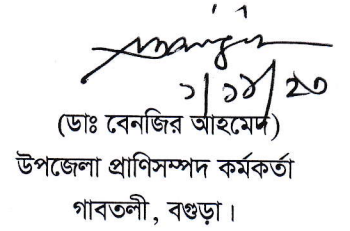 (ডাঃ বেনজির আহমেদ)
উপজেলা প্রাণিসম্পদ কর্মকর্তা
গাবতলী, বগুড়া।